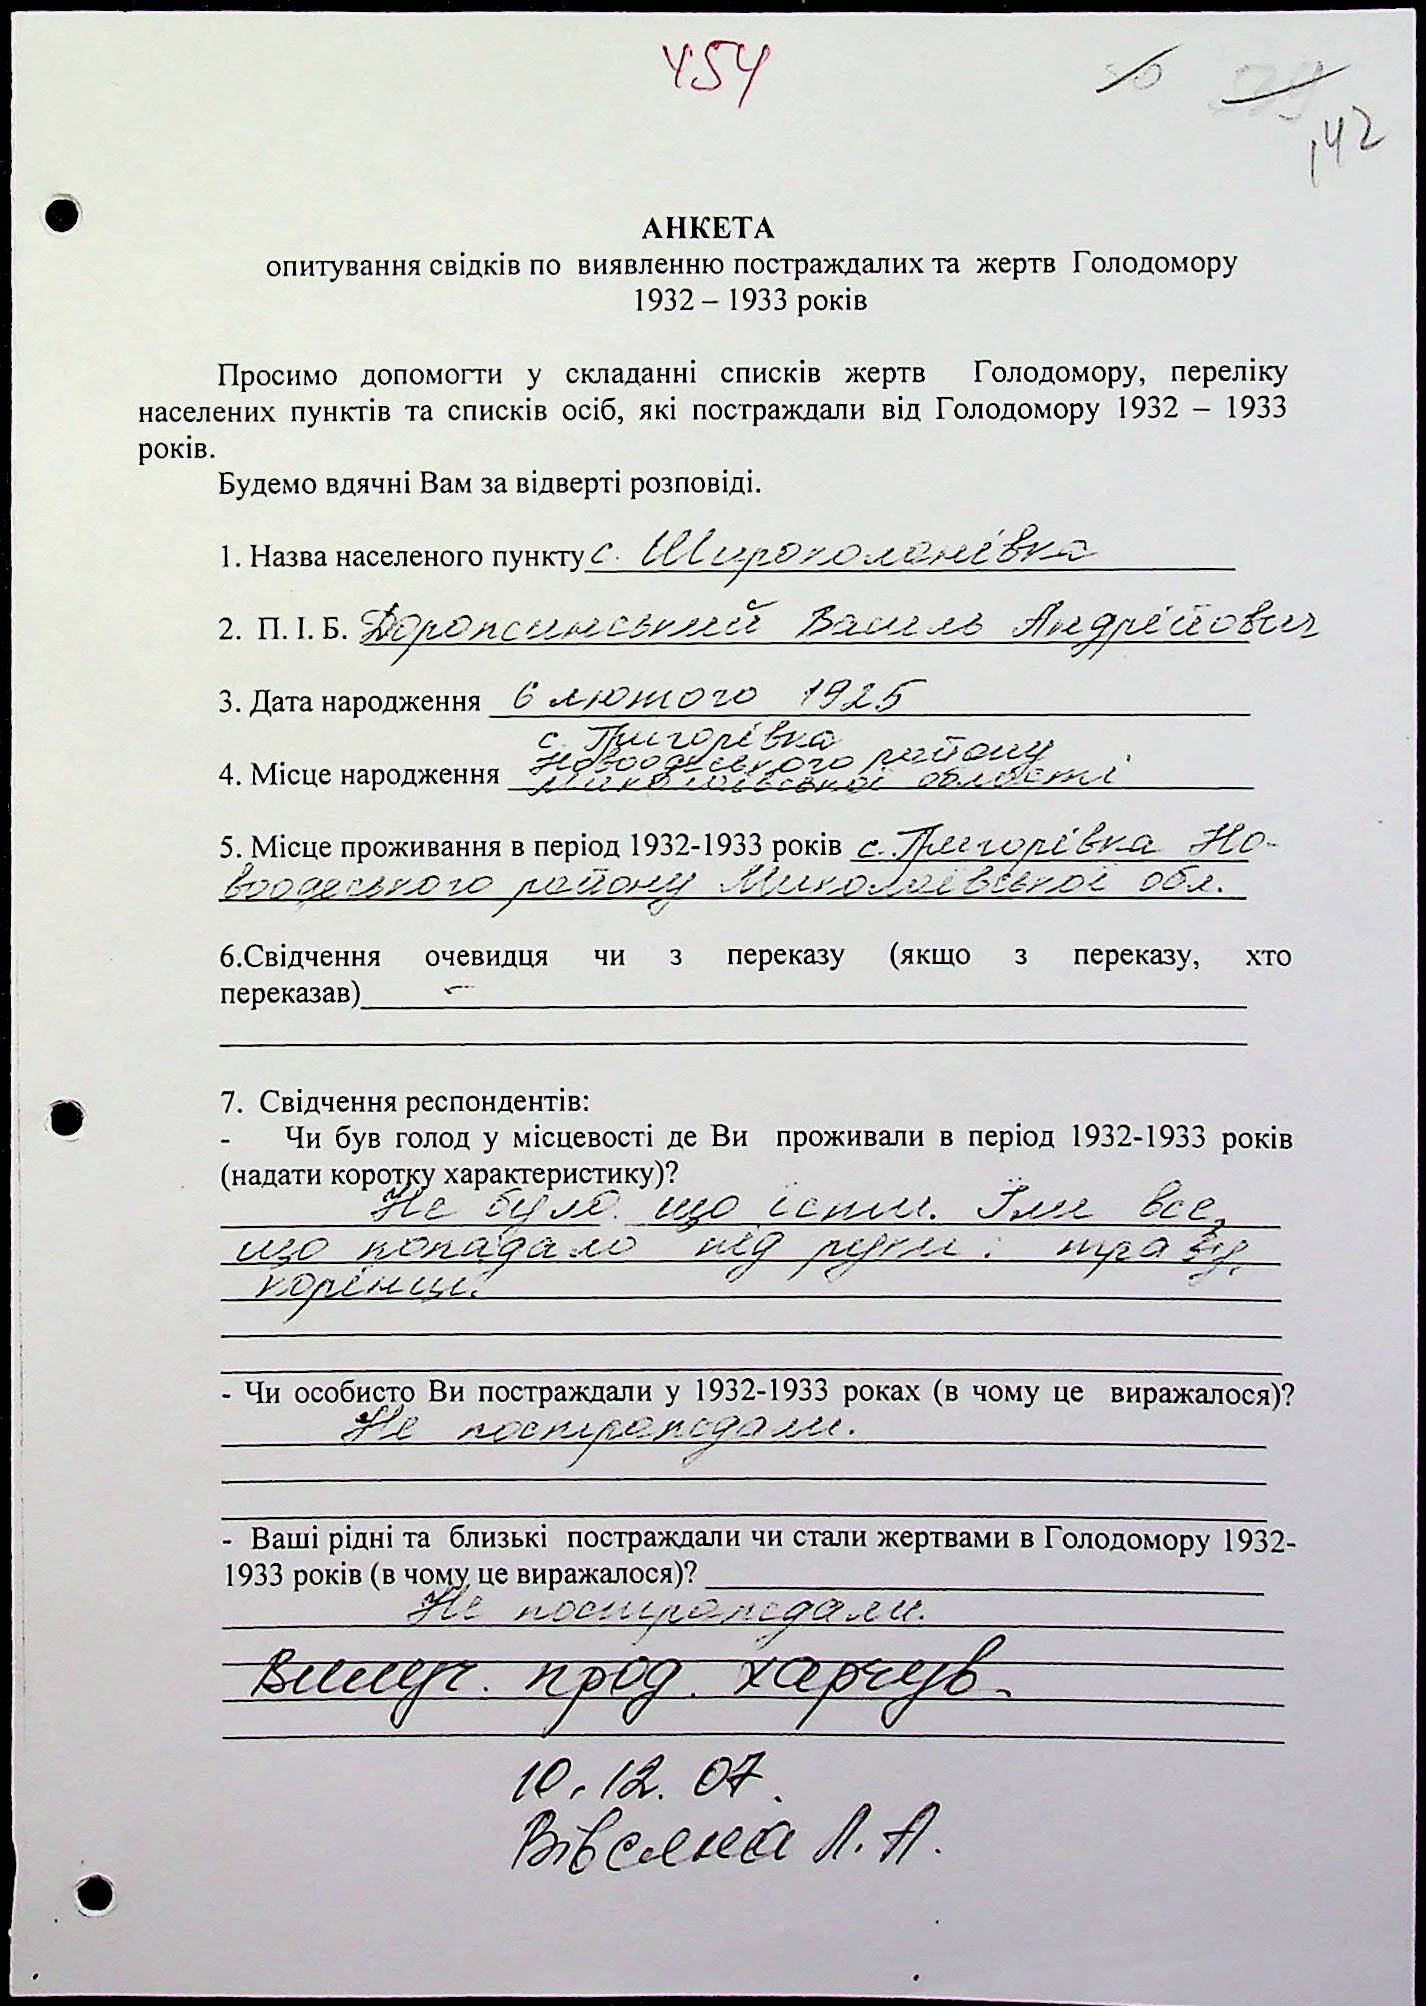 454
142
АНКЕТА
опитування свідків по виявленню постраждалих та жертв Голодомору
1932 – 1933 років
Просимо допомогти у складанні списків жертв Голодомору, переліку
населених пунктів та списків осіб, які постраждали від Голодомору 1932 – 1933
років.
Будемо вдячні Вам за відверті розповіді.
1. Назва населеного пункту с. Широколанівка
2. П. І. Б. Дорожинський Василь Андрійович
3. Дата народження 6 лютого 1925
с. Григорівка
Новоодеського району
4. Місце народження Миколаївської області
5. Місце проживання в період 1932-1933 років с. Григорівка Но-
воодеського району Миколаївської обл.
6.Свідчення очевидця чи з переказу (якщо з переказу, хто
переказав) -
7. Свідчення респондентів:
- Чи був голод у місцевості де Ви проживали в період 1932-1933 років
(надати коротку характеристику)?
Не було що їсти. Їли все,
що попадало під руки: траву,
корінці.
- Чи особисто Ви постраждали у 1932-1933 роках (в чому це виражалося)?
Не постраждали.
- Ваші рідні та близькі постраждали чи стали жертвами в Голодомору 1932-
1933 років (в чому це виражалося)?
Не постраждали.
Вилуч. прод. харчув.
10.12.07.
Л. А.